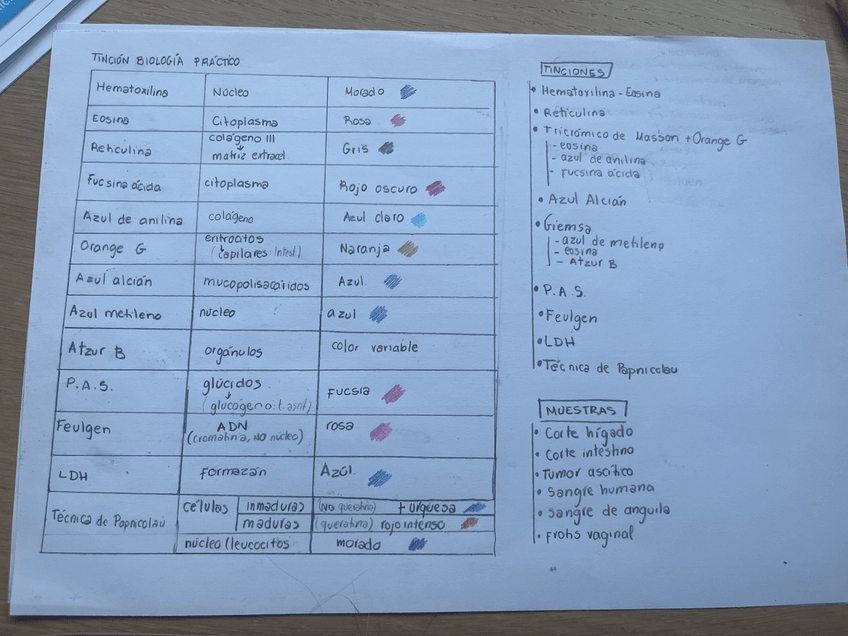 TINCIÓN BIOLOGÍA PRÁCTICO
Hematoxilina Núcleo Morado
Eosina Citoplasma Rosa
Reticulina colágeno III Gris
matriz extracel
Fucsina ácida citoplasma Rojo oscuro
Azul de anilina colageno Azul claro
Orange G eritrocitos Naranja
(capilares intest.)
Azul alcián mucopolisacáridos Azul
Azul metileno nucleo azul
Atzur B orgánulos color variable
P.A.S. glúcidos Fucsia
(glucógeno:
Feulgen ADN rosa
(cromatina, NO núcleo)
LDH formazán Azul
Técnica de Papnicolau células inmaduras (no queratina) turquesa
maduras (queratina) rojo intenso
núcleo (leucocitos morado
TINCIONES
• Hematoxilina - Eosina
• Reticulina
• Tricrómico de Masson + Orange G
- eosina
- azul de anilina
- fucsina ácida
• Azul Alcián
• Giemsa
- azul de metileno
- eosina
- Atzur B
• P.A.S.
• Feulgen
• LDH
• Técnica de Papnicolau
MUESTRAS
• Corte hígado
• Corte intestino
• Tumor ascítico
• Sangre humana
• Sangre de anguila
• Frotis vaginal